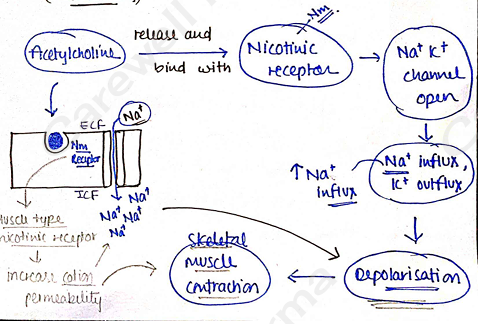 Nm
Acetylcholine
release and
bind with
Nicotinic
receptor
Na⁺ K⁺
channel
open
Na⁺
ECF
Nm
Receptor
ICF
Na⁺
Na⁺ Na⁺
Na⁺
↑ Na⁺
influx
Na⁺ influx
K⁺ outflux
Muscle type
nicotinic receptor
increase cation
permeability
Skeletal
muscle
contraction
Depolarisation